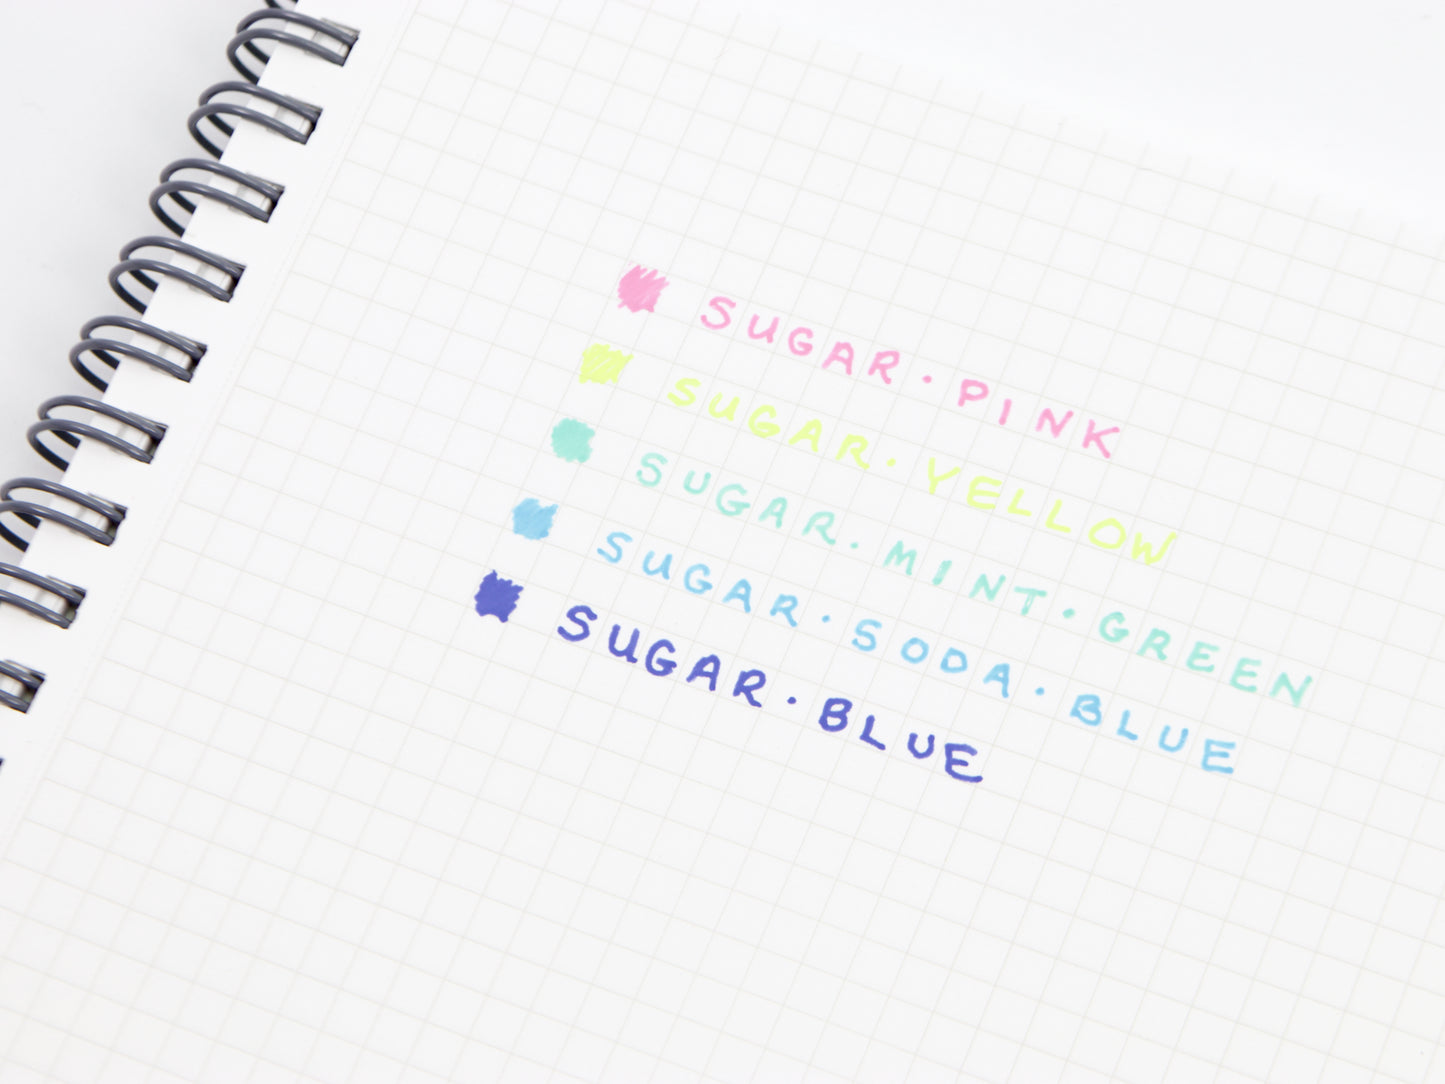 SUGAR · PINK
SUGAR · YELLOW
SUGAR · MINT · GREEN
SUGAR · SODA · BLUE
SUGAR · BLUE